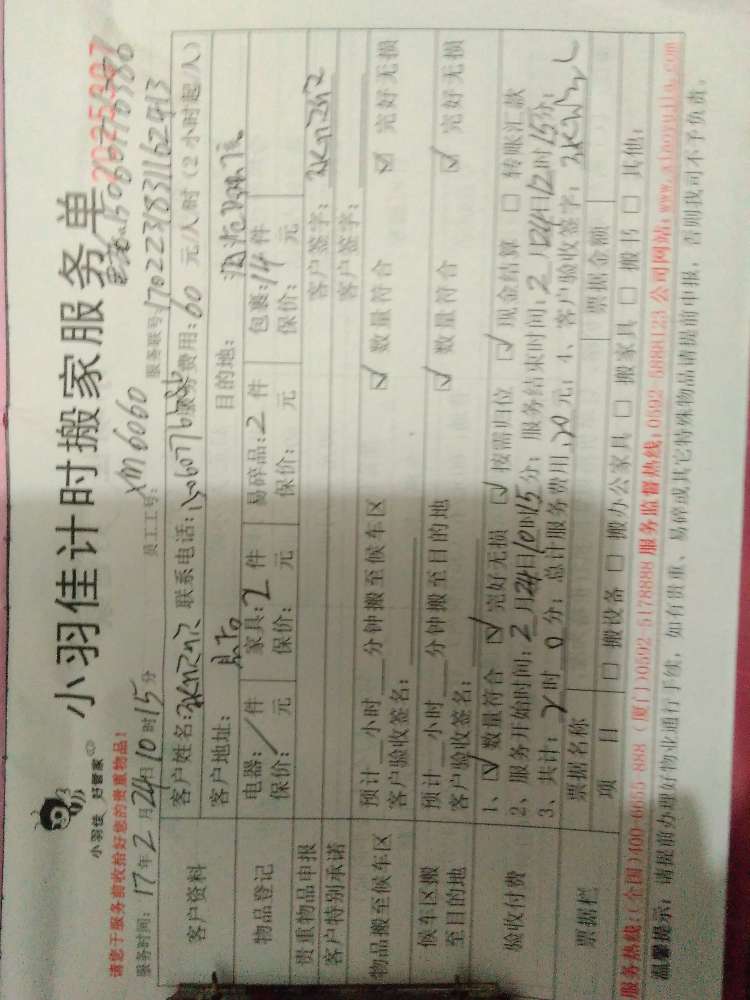 小羽佳 好管家
小羽佳计时搬家服务单
请您于服务前收拾好您的贵重物品!
员工工号: XM6060 服务联号:
服务时间: 17年2月24日10时15分
客户资料 客户姓名: 联系电话: 服务费用:60元/人/时(2小时起/人)
客户地址: 目的地:
物品登记 电器:/件 家具:2件 易碎品:2件 包裹:14件
保价: 元 保价: 元 保价: 元 保价: 元
贵重物品申报 客户签字:
客户特别承诺 客户签字:
物品搬至候车区 预计__小时__分钟搬至候车区 ☑ 数量符合 ☑ 完好无损
客户验收签名:
候车区搬至目的地 预计__小时__分钟搬至目的地 ☑ 数量符合 ☑ 完好无损
客户验收签名:
验收付费 1、☑ 数量符合 ☑ 完好无损 ☑ 按需归位 ☑ 现金结算 □ 转账汇款
2、服务开始时间:2月24日10时15分;服务结束时间:2月24日12时15分;
3、共计:2时0分;总计服务费用: 元;4、客户验收签字:
票据栏 票据名称 票据金额
项 目 □ 搬设备 □ 搬办公家具 □ 搬家具 □ 搬书 □ 其他:
服务热线:(全国)400-6655-888 (厦门)0592-5178888 服务监督热线:0592-5888123 公司网站:www.xiaoyujia.com
温馨提示:请提前办理好物业通行手续,如有贵重、易碎或其它特殊物品请提前申报,否则我司不予负责。